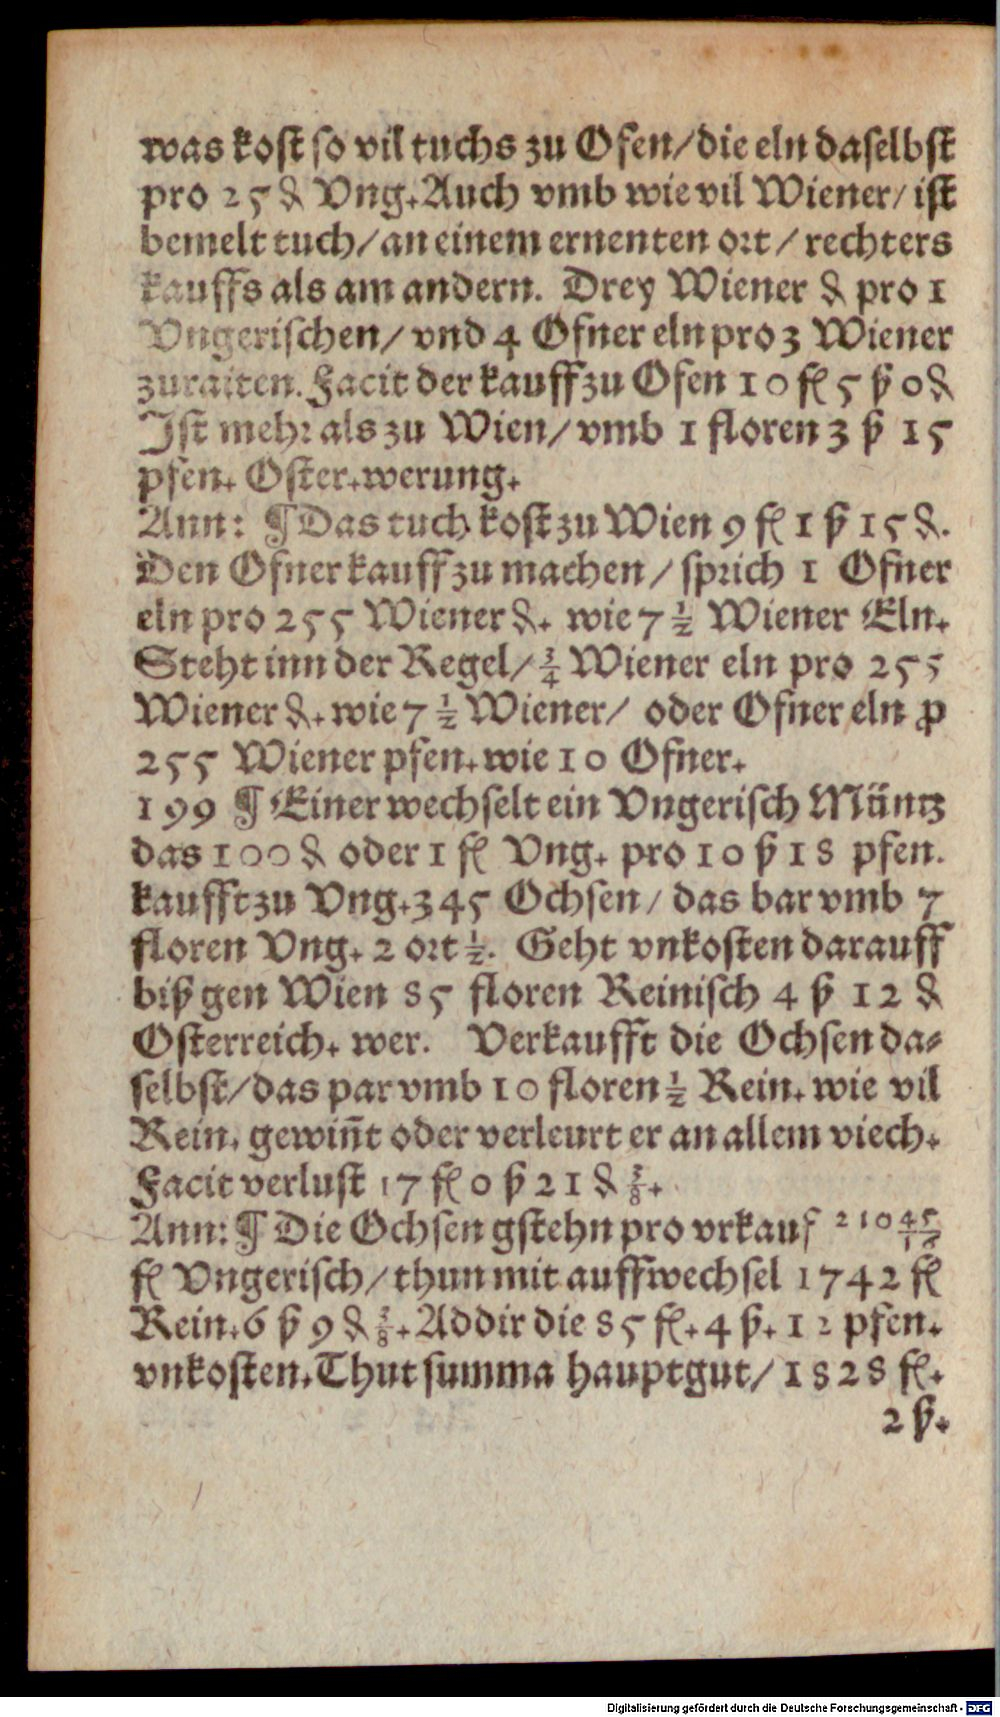 was kost so vil tuchs zu Ofen/die eln daselbst
pro 25 ₰ Vng. Auch vmb wie vil Wiener/ ist
bemelt tuch/an einem ernenten ort/ rechters
kauffs als am andern. Drey Wiener ₰ pro 1
Vngerischen/ vnd 4 Ofner eln pro 3 Wiener
zuraiten. Facit der kauff zu Ofen 10 fl 5 ß 0 ₰
Ist mehr als zu Wien/ vmb 1 floren 3 ß 15
pfen. Oster. werung.
Ann: ¶ Das tuch kost zu Wien 9 fl 1 ß 15 ₰.
Den Ofner kauff zu machen/ sprich 1 Ofner
eln pro 255 Wiener ₰. wie 7 ½ Wiener Eln.
Steht inn der Regel/ ¾ Wiener eln pro 255
Wiener ₰. wie 7 ½ Wiener/ oder Ofner eln ꝓ
255 Wiener pfen. wie 10 Ofner.
199 ¶ Einer wechselt ein Vngerisch Müntz
das 100 ₰ oder 1 fl Vng. pro 10 ß 18 pfen.
kaufft zu Vng. 345 Ochsen/ das bar vmb 7
floren Vng. 2 ort ½. Geht vnkosten darauff
biß gen Wien 85 floren Reinisch 4 ß 12 ₰
Osterreich. wer. Verkaufft die Ochsen da-
selbst/das par vmb 10 floren ½ Rein. wie vil
Rein. gewiñt oder verleurt er an allem viech.
Facit verlust 17 fl 0 ß 21 ₰ ⅜.
Ann: ¶ Die Ochsen gstehn pro vrkauf
fl Vngerisch/thun mit auffwechsel 1742 fl
Rein. 6 ß 9 ₰ ⅜. Addir die 85 fl. 4 ß. 12 pfen.
vnkosten. Thut summa hauptgut/ 1828 fl.
2 ß.
Digitalisierung gefördert durch die Deutsche Forschungsgemeinschaft - DFG